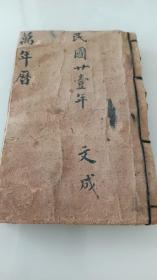 萬年曆
民國廿壹年
文成